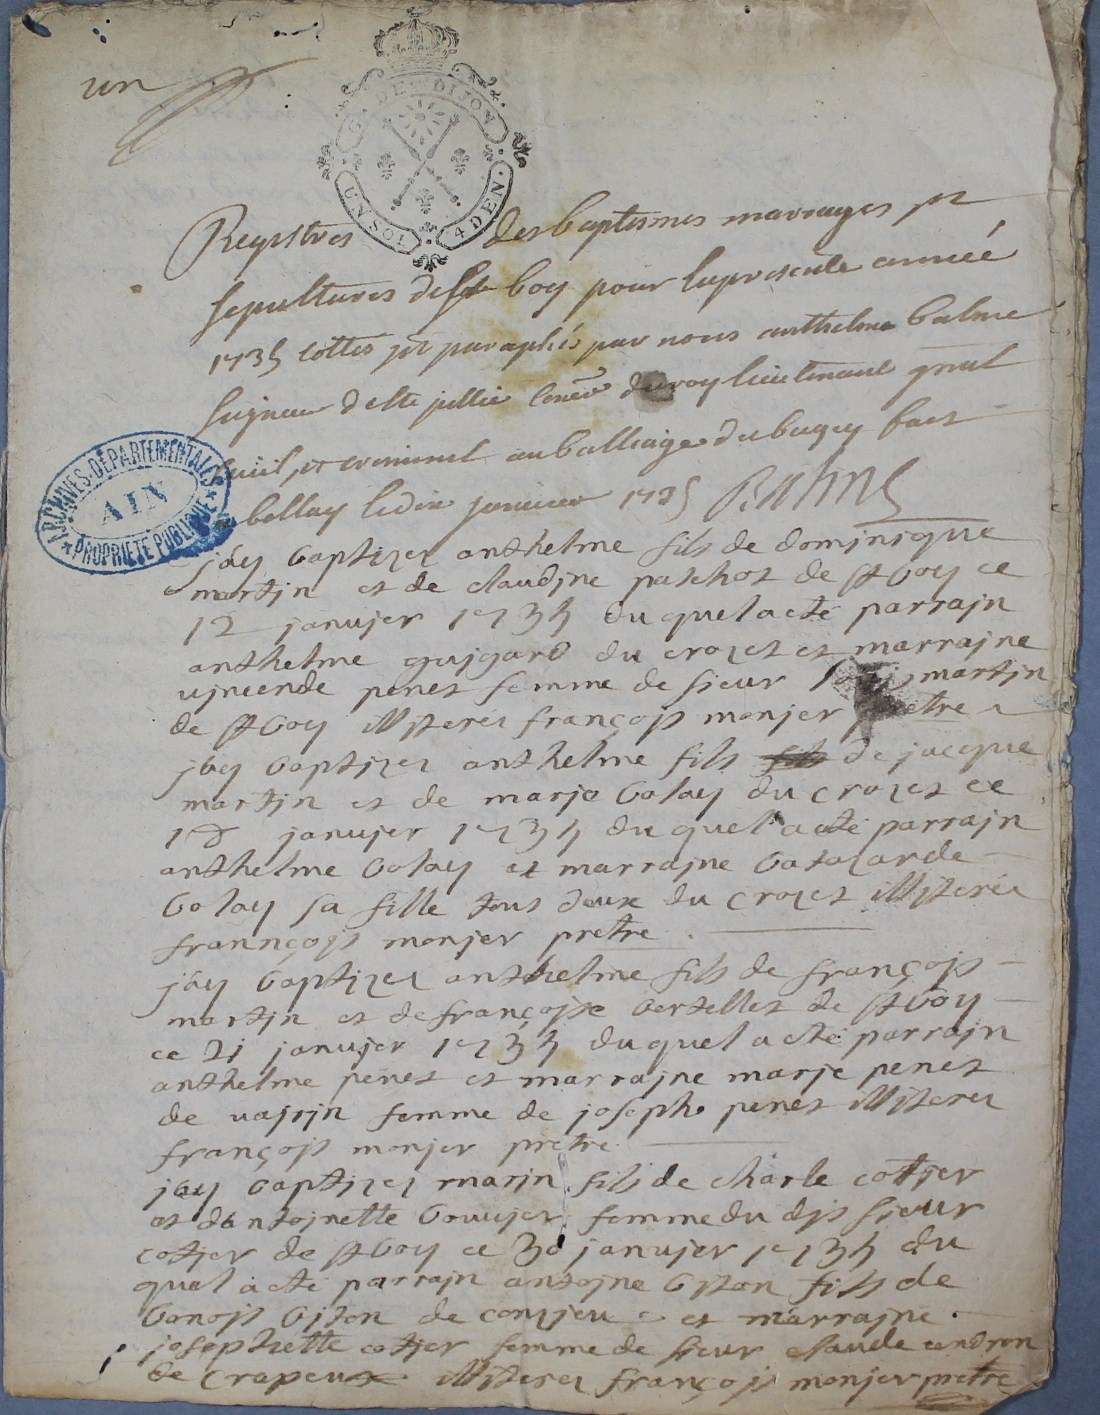 un
G. DE DIJON
UN SOL 4 DEN.
Registres des baptismes mariages et
sepultures de St boy pour la presente année
1735 cottes et paraphés par nous anthelme balme
seigneur de Ste jullie Coner du roy lieutenant gnal
civil, et criminel au balliage du bugey fait
a bellay le dix janvier 1735 Balme
ARCHIVES DÉPARTEMENTALES
AIN
PROPRIÉTÉ PUBLIQUE
jay baptizez anthelme fils de dominique
martjn et de claudjne paschot de st boy ce
12 janujer 1735 du quel acté parrajn
anthelme gujgard du crozet et marrajne
ujncende penet femme de sieur martjn
de st boy françojs monjer pretre
jay baptizez anthelme fils fils de jacque
martjn et de marje bolay du crozet ce
janujer 1735 du quel acté parrajn
anthelme bolay et marrajne
bolay sa fille tous deux du crozet
franncojs monjer pretre
jay baptizez anthelme fils de françojs
martjn et de françojse bertellet de st boy
ce 21 janujer 1735 du quel acté parrajn
anthelme penet et marrajne marje penet
de femme de joseph penet
françojs monjer pretre
jay baptizez marjn fils de charle cotjer
et dantojnette boujer femme du djs sjeur
cotjer de st boy ce 30 janujer 1735 du
quel acté parrajn antojne bjton fils de
benojs bjton de conzjeu et marrajne
josephette cotjer femme de sjeur claude andron
de crapeux françojs monjer pretre